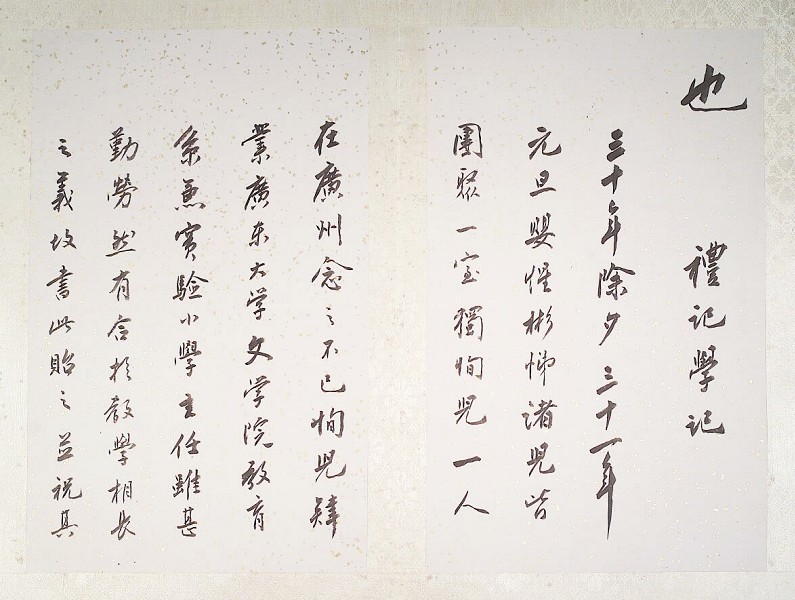 也 禮記學記
三十年除夕三十一年
元旦嬰惺彬悌諸兒皆
團聚一室獨恂兒一人
在廣州念之不已恂兒肄
業廣東大学文学院教育
系兼實驗小學主任雖甚
勤勞然有合於教學相長
之義故書此貽之並祝其